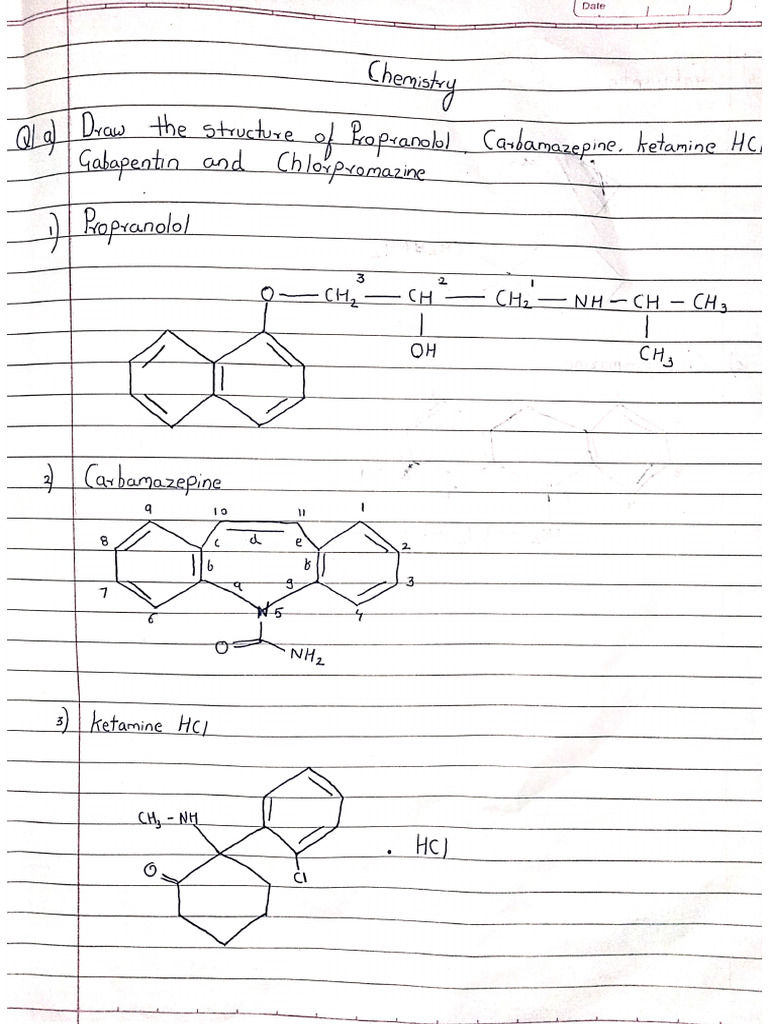 Date
Chemistry
Q1 a) Draw the structure of Propranolol, Carbamazepine, ketamine HCl
Gabapentin and Chlorpromazine
1) Propranolol
3 2 1
O — CH₂ — CH — CH₂ — NH — CH — CH₃
OH CH₃
2) Carbamazepine
9 10 11 1
8 c d e 2
b f
7 a g 3
6 N 5 4
O NH₂
3) ketamine HCl
CH₃ - NH
. HCl
O Cl